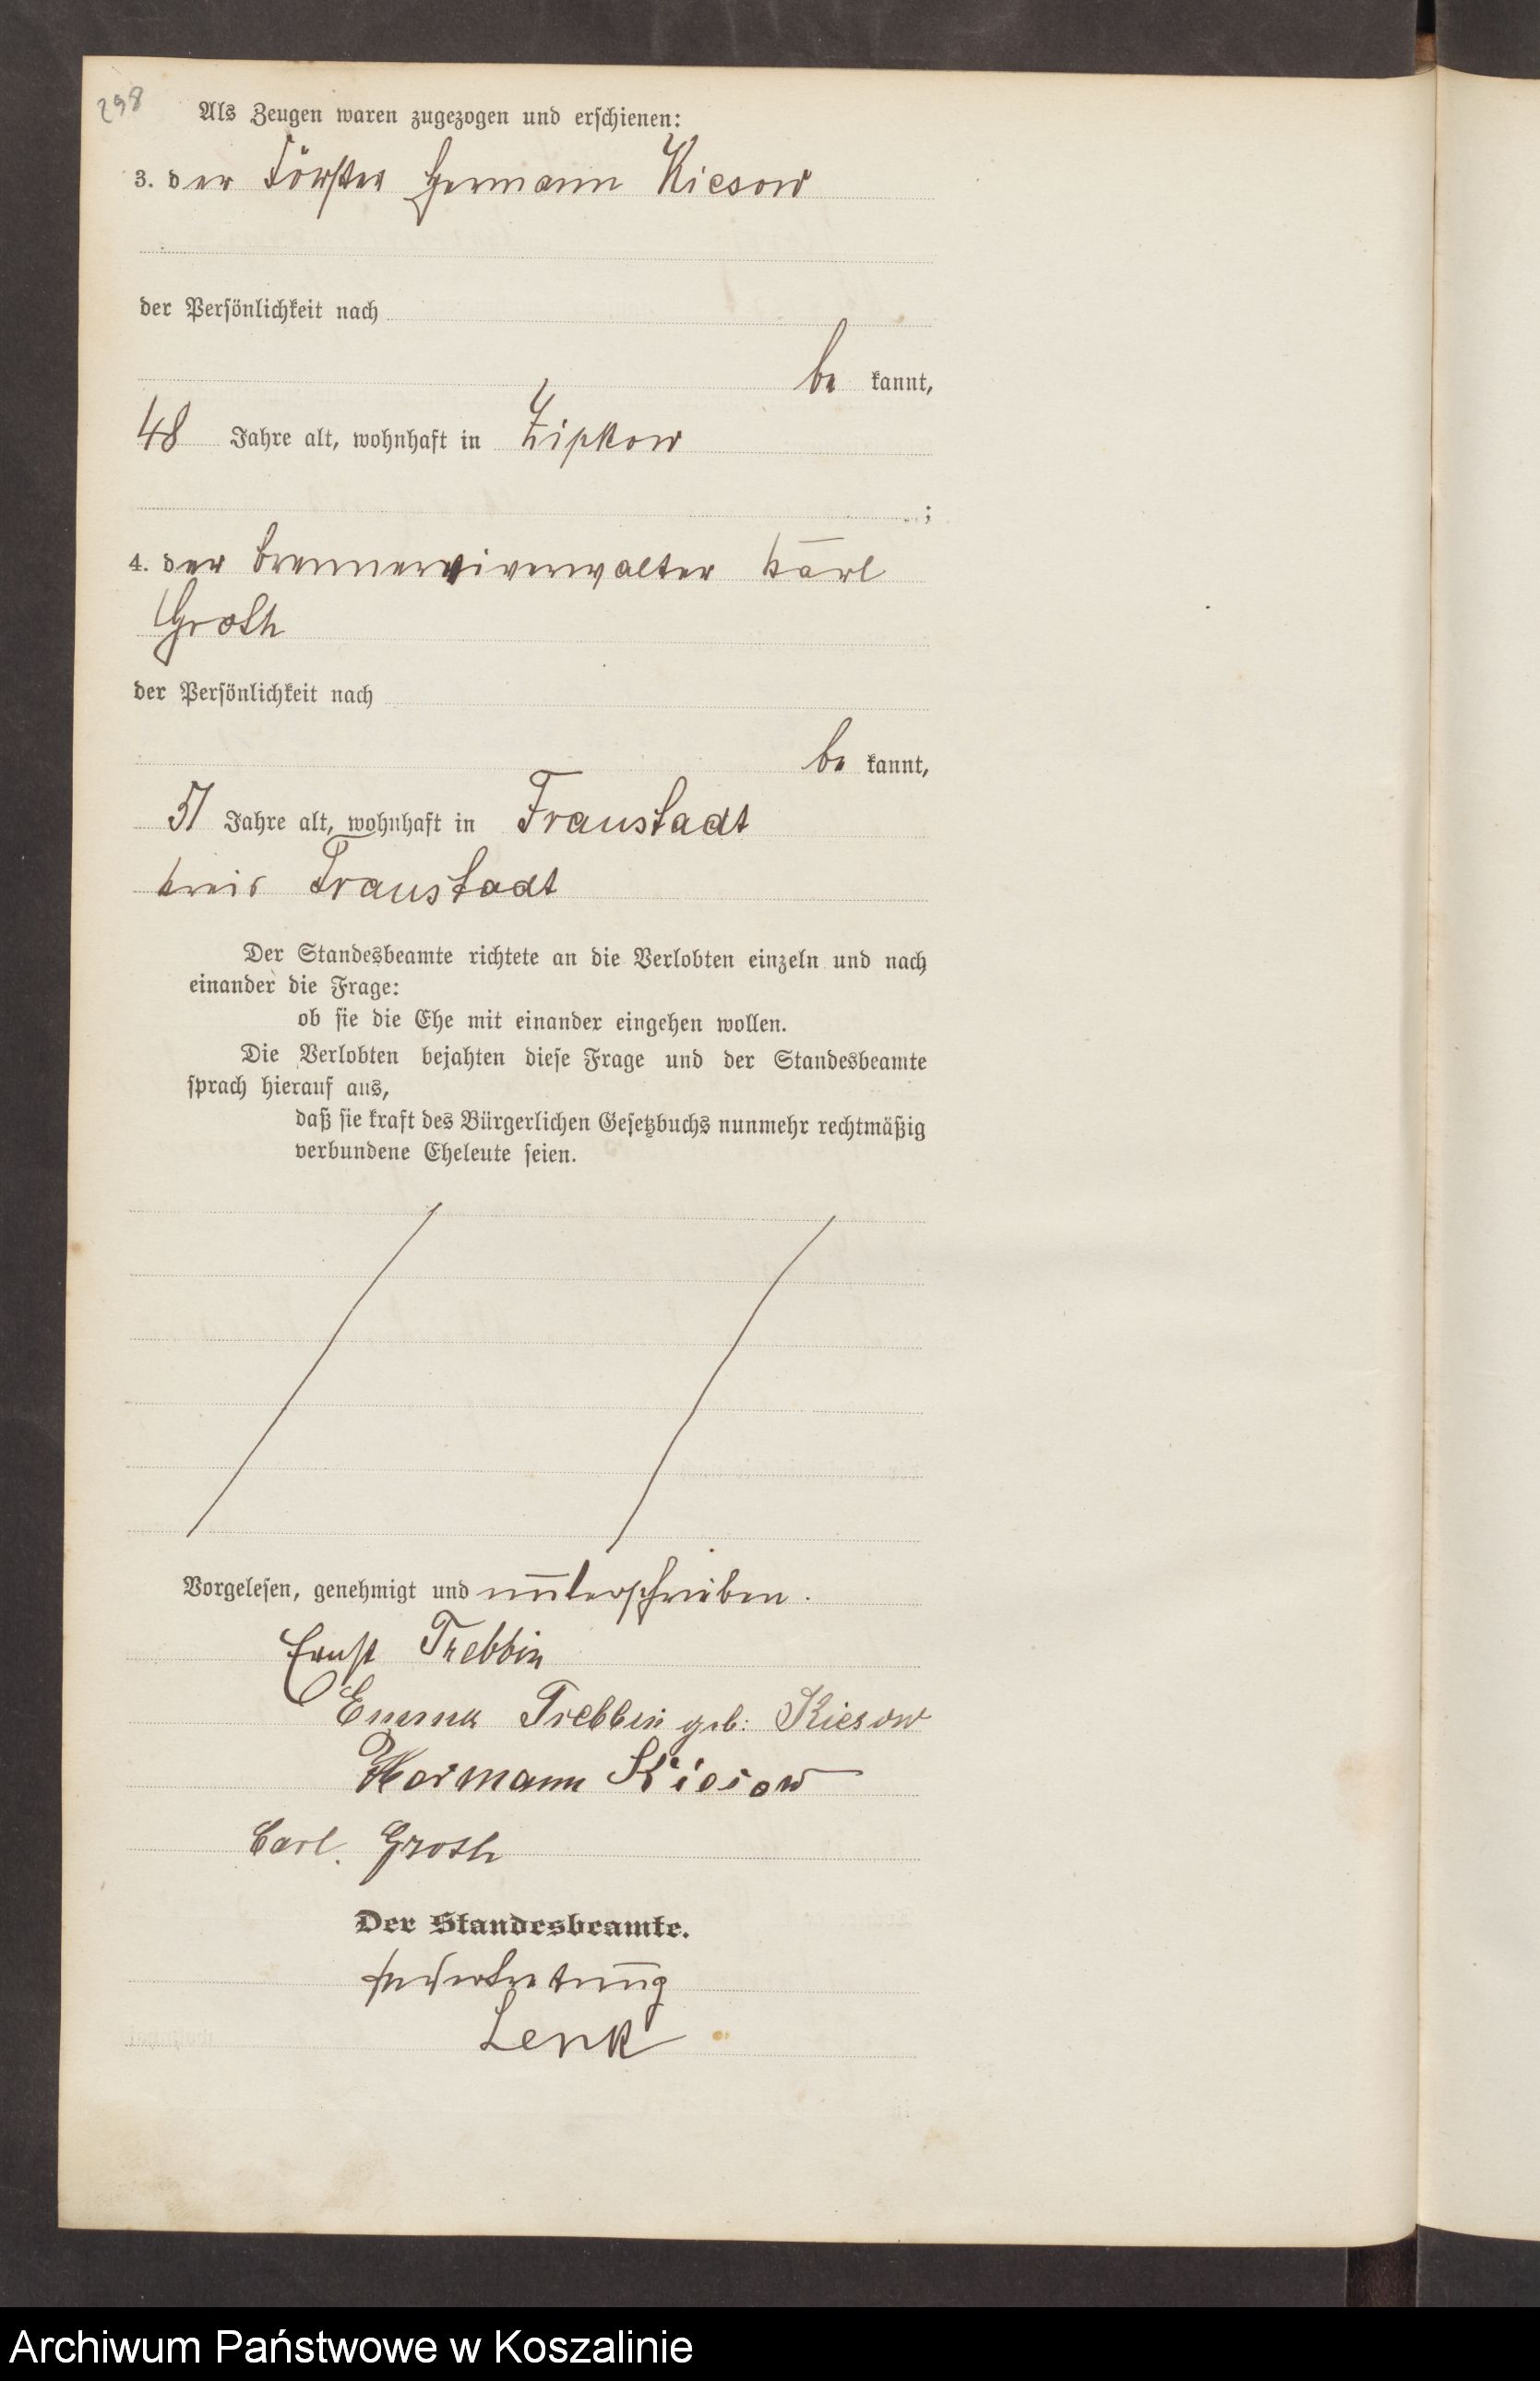 298
Als Zeugen waren zugezogen und erschienen:
3. der Förster Hermann Kiesow
der Persönlichkeit nach
be kannt,
48 Jahre alt, wohnhaft in Zipkow
;
4. der Brennereiverwalter Karl
Groth
der Persönlichkeit nach
be kannt,
51 Jahre alt, wohnhaft in Fraustadt
Kreis Fraustadt
Der Standesbeamte richtete an die Verlobten einzeln und nach
einander die Frage:
ob sie die Ehe mit einander eingehen wollen.
Die Verlobten bejahten diese Frage und der Standesbeamte
sprach hierauf aus,
daß sie kraft des Bürgerlichen Gesetzbuchs nunmehr rechtmäßig
verbundene Eheleute seien.
Vorgelesen, genehmigt und unterschrieben.
Ernst Trebbin
Emma Trebbin geb: Kiesow
Hermann Kiesow
Carl. Groth
Der Standesbeamte.
Lenk
Archiwum Państwowe w Koszalinie